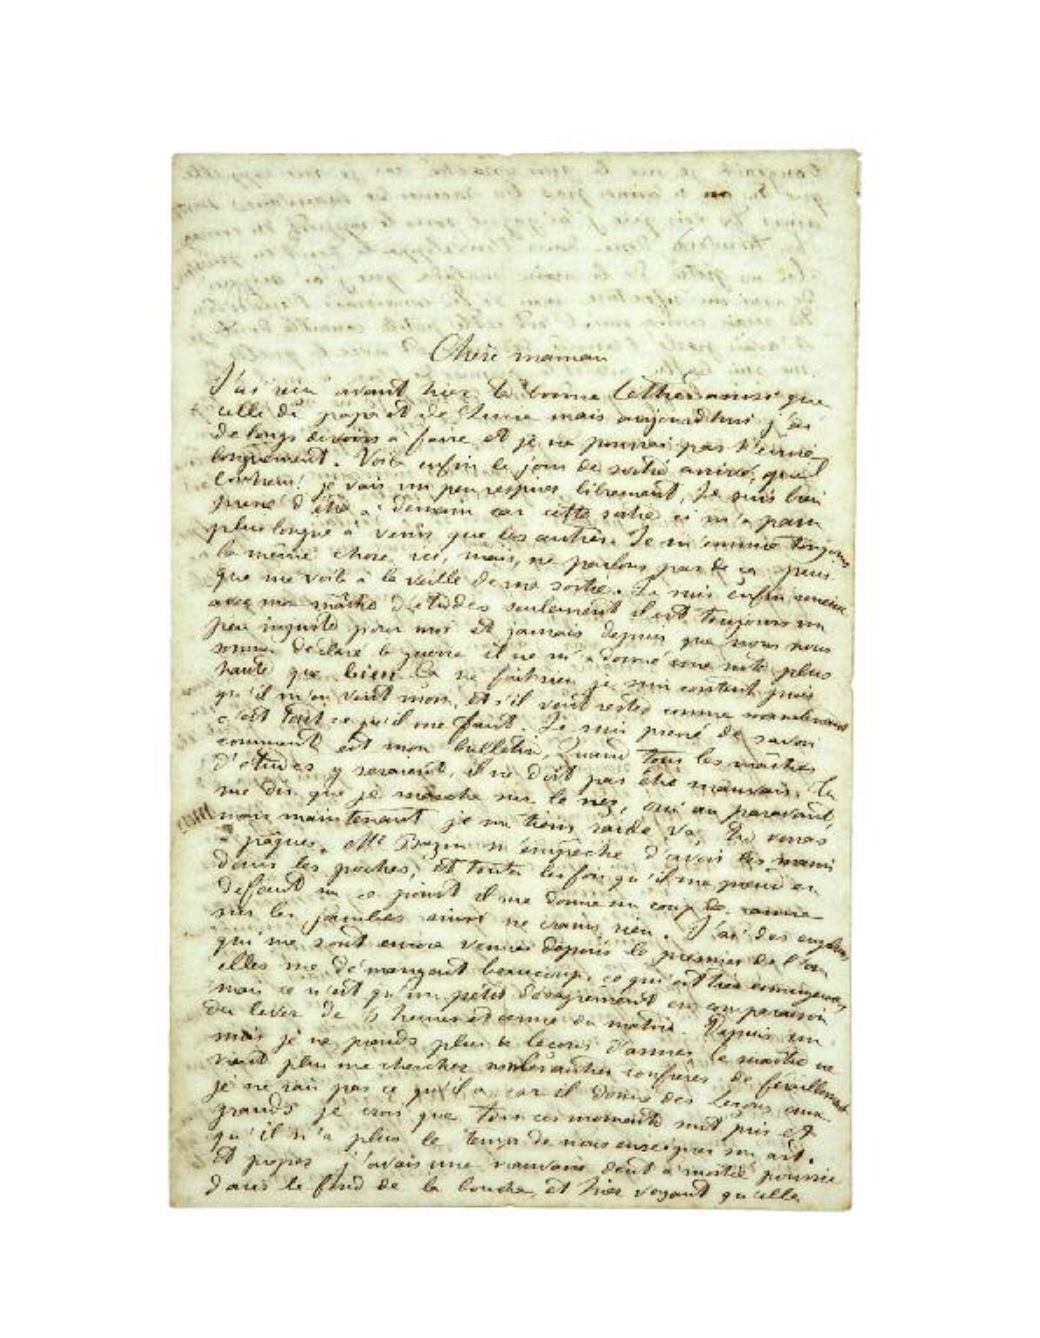 Chère maman
J'ai reçu avant hier ta bonne lettre ainsi que
celle de papa et de mais aujourd'hui j'ai
de longs devoirs a faire et je ne pourrai pas t'écrire
longuement. Voila enfin le jour de sortie arrivé, quel
bonheur! je vais un peu respirer librement, Je suis bien
pressé d'être a demain car cette sortie ci m'a paru
plus longue à venir que les autres. Je m'ennuie toujours
la même chose ici, mais, ne parlons pas de ça puis
que me voila à la veille de ma sortie. Je suis enfin
avec mon maître d'études seulement il est toujours un
peu injuste pour moi et jamais depuis que nous nous
sommes déclaré la guerre il ne m'a donné une note plus
haute que bien. Ça ne fait rien je suis content puis
qu'il m'en veut moins, et s'il veut rester comme maintenant
c'est tout ce qu'il me faut. Je suis pressé de savoir
comment est mon bulletin. Quand tous les maîtres
d'études y seraient, il ne doit pas être mauvais. Tu
me dis que je marche sur le nez, oui au paravant,
mais maintenant je me tiens raide va. Tu verras
à pâques. Mr m'empêche d'avoir les mains
dans les poches, et toutes les fois qu'il me prend en
défaut sur ce point il me donne un coup de canne
sur les jambes ainsi ne crains rien. J'ai des engelures
qui me sont encore venues depuis le premier de l'an
elles me démangent beaucoup, ce qui est très ennuyeux
mais ce n'est qu'un petit désagrément en comparaison
du lever de 5 heures et demie du matin. Depuis un
mois je ne prends plus de leçons d'armes le maître ne
vient plus me chercher confrères de
je ne sais pas ce qu'il a car il donne des leçons aux
grands je crois que tous ces moments sont pris et
qu'il n'a plus le temps de nous enseigner son art.
Et propos j'avais une mauvaise dent a moitié pourrie
dans le fond de la bouche, et hier voyant qu'elle